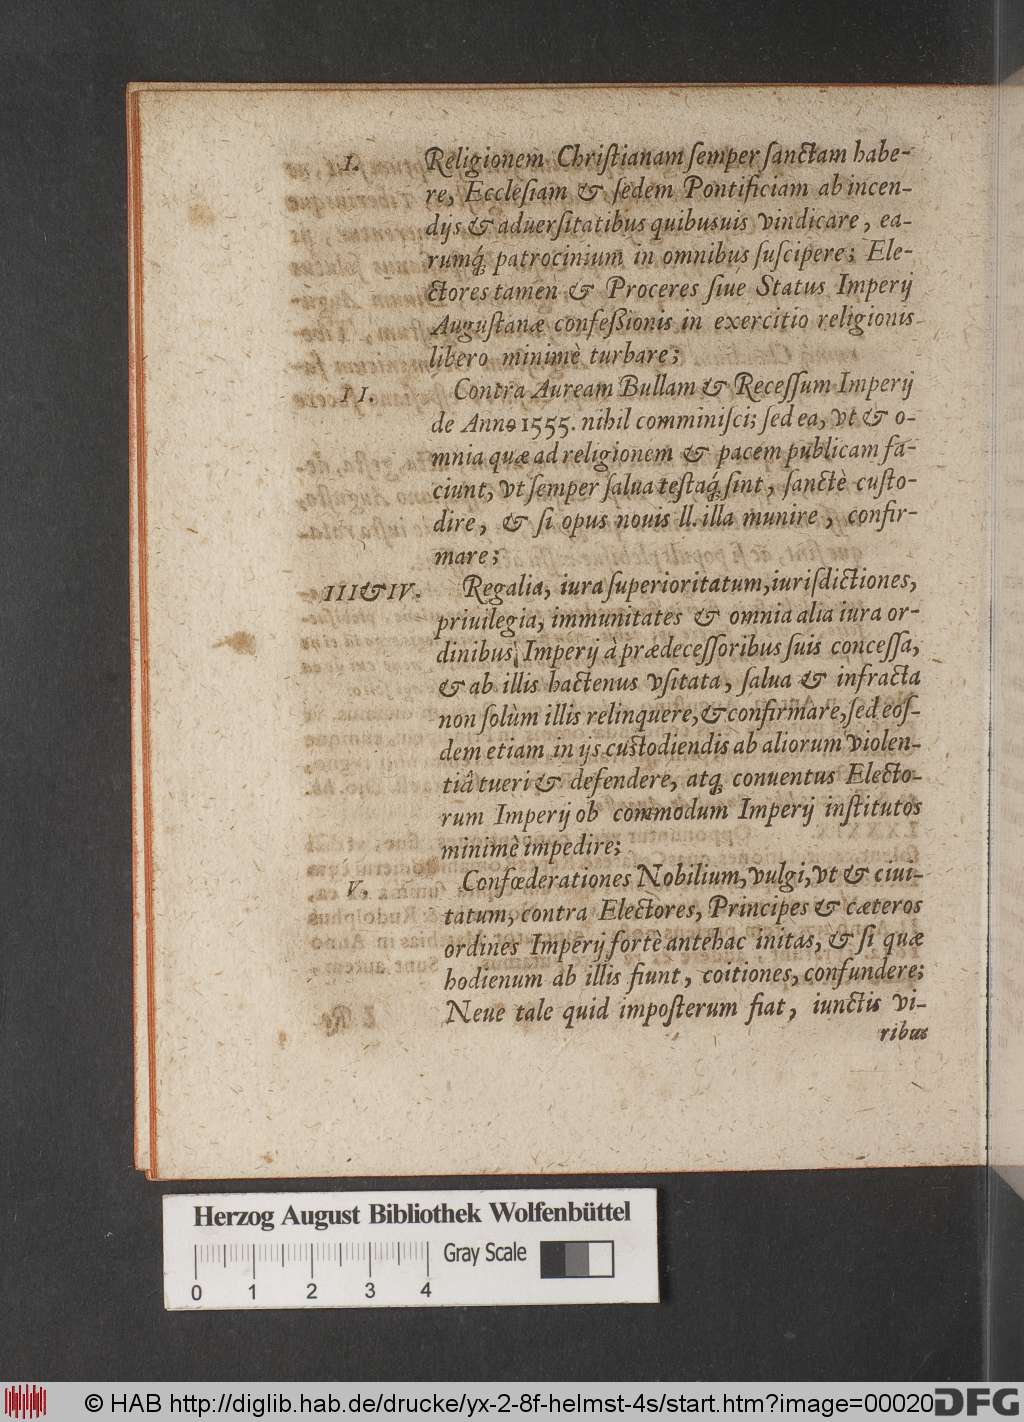 I. Religionem Chriſtianam ſemper ſanctam habe-
re, Eccleſiam & ſedem Pontificiam ab incen-
dijs & aduerſitatibus quibusuis vindicare, ea-
rumq́ patrocinium in omnibus ſuſcipere; Ele-
ctores tamen & Proceres ſiue Status Imperij
Auguſtanæ confeßionis in exercitio religionis
libero minimè turbare;
II. Contra Auream Bullam & Receſſum Imperij
de Anno 1555. nihil comminiſci; ſed ea, vt & o-
mnia quæ ad religionem & pacem publicam fa-
ciunt, vt ſemper ſalua teſtaq́ ſint, ſanctè cuſto-
dire, & ſi opus nouis ll. illa munire, confir-
mare;
III & IV. Regalia, iura ſuperioritatum, iuriſdictiones,
priuilegia, immunitates & omnia alia iura or-
dinibus Imperij à prædeceſſoribus ſuis conceſſa,
& ab illis hactenus vſitata, ſalua & infracta
non ſolùm illis relinquere, & confirmare, ſed eoſ-
dem etiam in ijs cuſtodiendis ab aliorum violen-
tiâ tueri & defendere, atq; conuentus Electo-
rum Imperij ob commodum Imperij inſtitutos
minimè impedire;
V. Confœderationes Nobilium, vulgi, vt & ciui-
tatum, contra Electores, Principes & cæteros
ordines Imperij forte antehac initas, & ſi quæ
hodienum ab illis fiunt, coitiones, confundere;
Neue tale quid impoſterum fiat, iunctis vi-
ribus
Herzog August Bibliothek Wolfenbüttel
Gray Scale
0 1 2 3 4
© HAB http://diglib.hab.de/drucke/yx-2-8f-helmst-4s/start.htm?image=00020
DFG